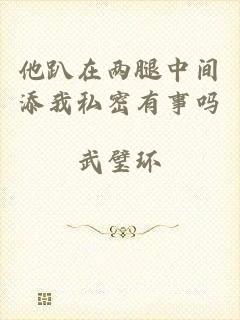 他趴在两腿中间
添我私密有事吗
武璧环